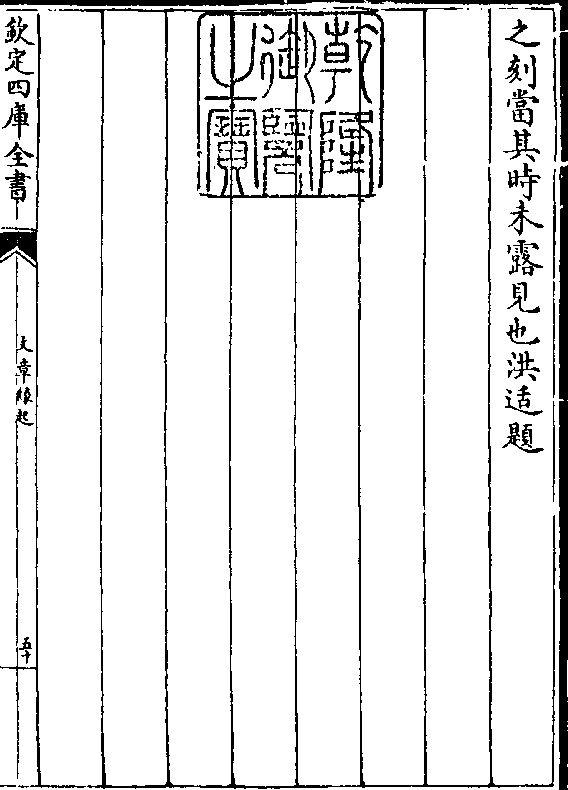 之刻當其時未露見也洪适題
乾隆
御覽
之寶
欽定四庫全書
文章緣起
五十